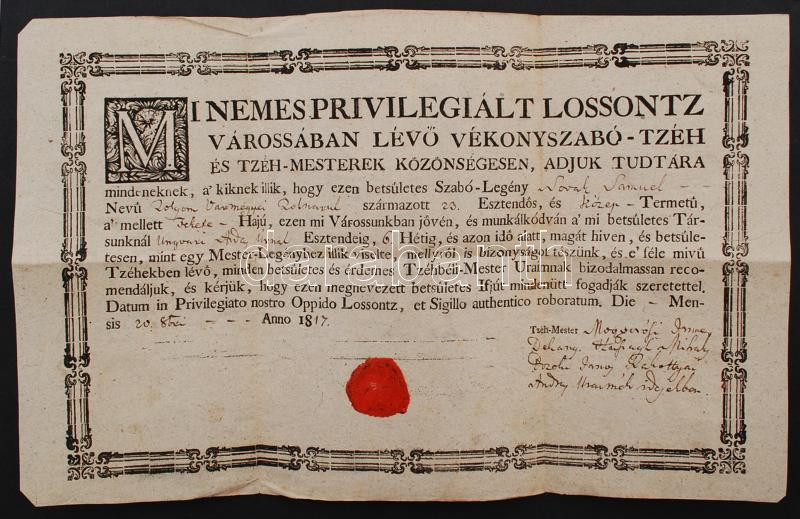 MI NEMES PRIVILEGIÁLT LOSSONTZ
VÁROSSÁBAN LÉVŐ VÉKONYSZABÓ-TZÉH
ÉS TZÉH-MESTEREK KÖZÖNSÉGESEN, ADJUK TUDTÁRA
mindeneknek, a' kiknek illik, hogy ezen betsületes Szabó-Legény Novak Samuel
Nevű Zolyom Varmegyei származott 23. Esztendős, és közep- Termetű,
a' mellett Fekete- Hajú, ezen mi Városunkban jövén, és munkálkodván a' mi betsületes Tár-
sunknál Ungvari Esztendeig, 6. Hétig, és azon idő alatt, magát hiven, és betsüle-
tesen, mint egy Mester-Legényhez illik viselte, mellyről is bizonyságot tészünk, és e' féle mivű
Tzéhekben lévő, minden betsületes és érdemes Tzéhbéli-Mester Uraimnak bizodalmassan reco-
mendáljuk, és kérjük, hogy ezen megnevezett betsületes Ifjút mindenütt fogadják szeretettel.
Datum in Privilegiato nostro Oppido Lossontz, et Sigillo authentico roboratum. Die - Men-
sis 20. 8bri - - - Anno 1817.
Tzéh-Mester
Mihaly
Janos
Andras Uraimék
darabanth